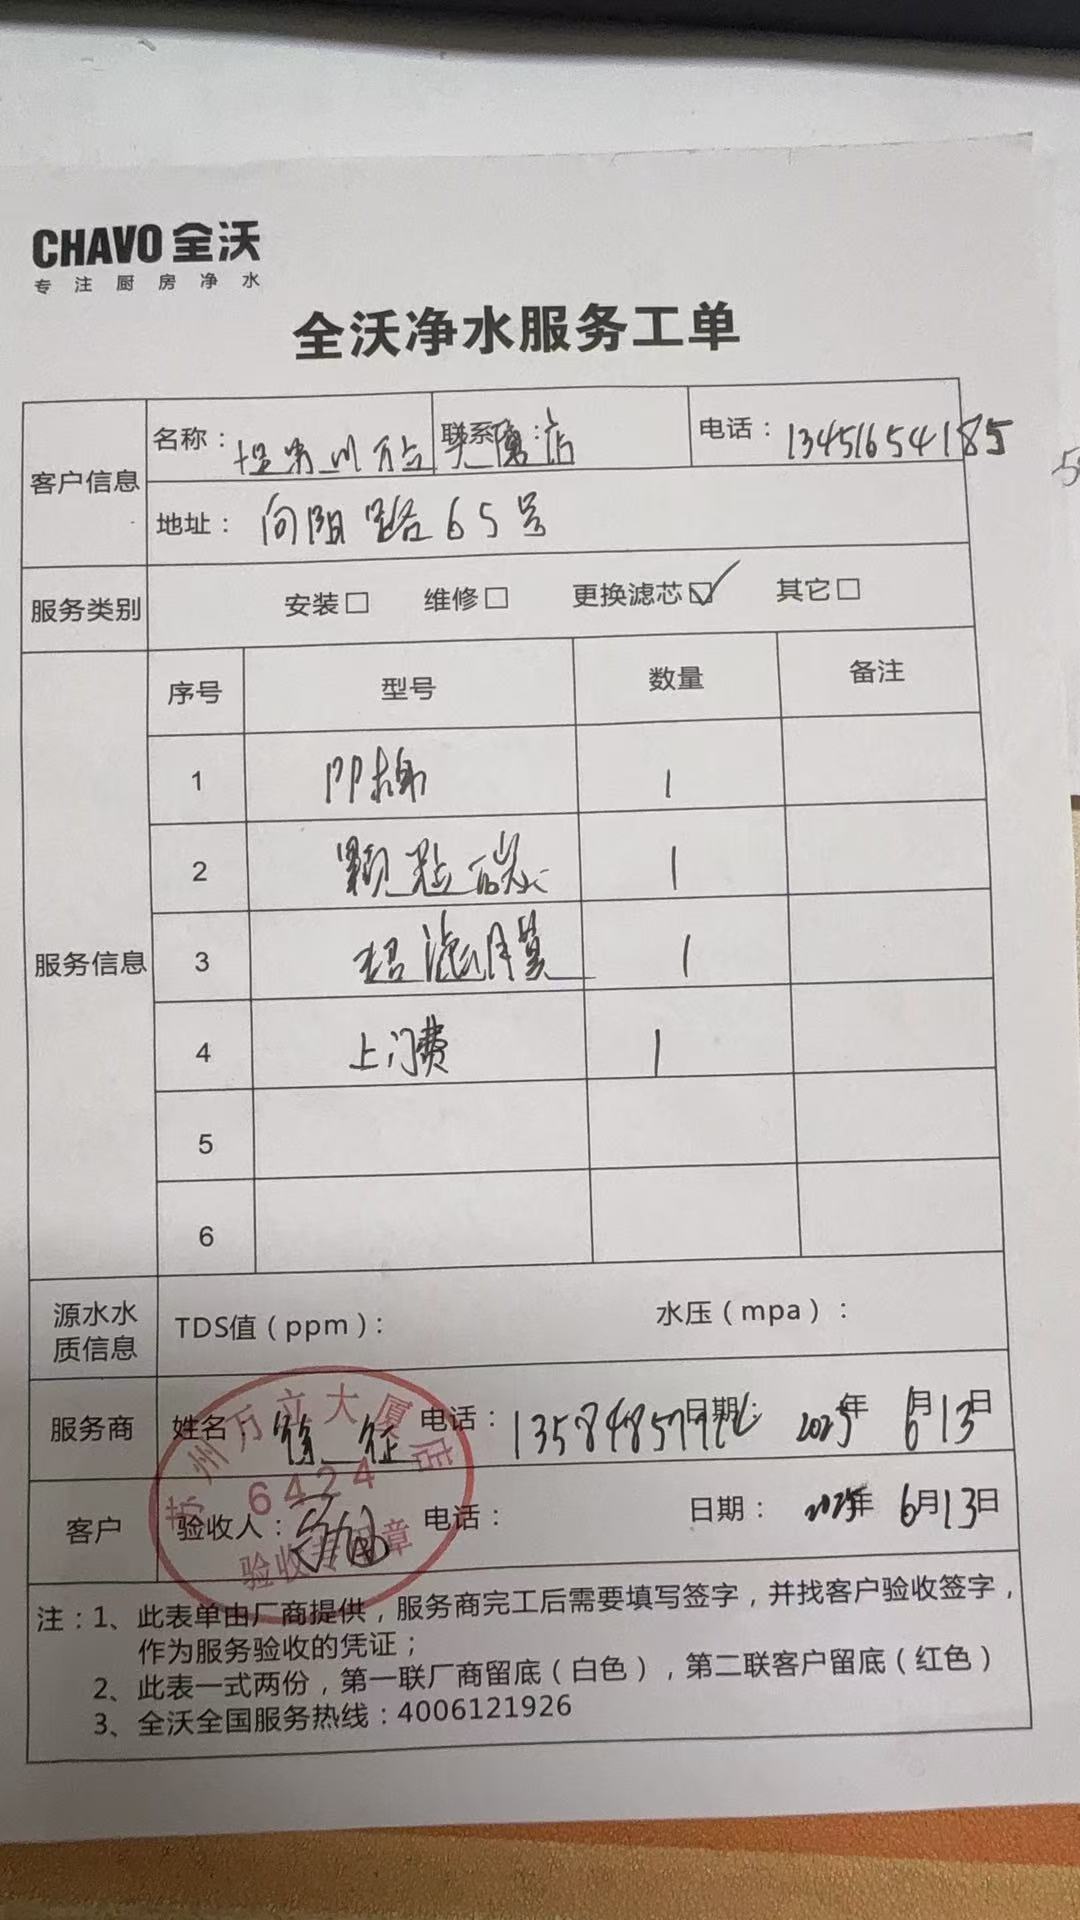 CHAVO 全沃
专注厨房净水
全沃净水服务工单
客户信息
名称：
联系 ： 店
电话：13451654185
地址：向阳路65号
服务类别 安装□ 维修□ 更换滤芯☑ 其它□
服务信息
序号 型号 数量 备注
1 PP棉 1
2 颗粒碳 1
3 超滤膜 1
4 上门费 1
5
6
源水水质信息 TDS值（ppm）： 水压（mpa）：
服务商 姓名： 徐 征 电话： 日期： 2025年 6月13日
客户 验收人： 电话： 日期： 2025年 6月13日
苏州万立大厦店
6424
验收专用章
注：1、此表单由厂商提供，服务商完工后需要填写签字，并找客户验收签字，
作为服务验收的凭证；
2、此表一式两份，第一联厂商留底（白色），第二联客户留底（红色）
3、全沃全国服务热线：4006121926